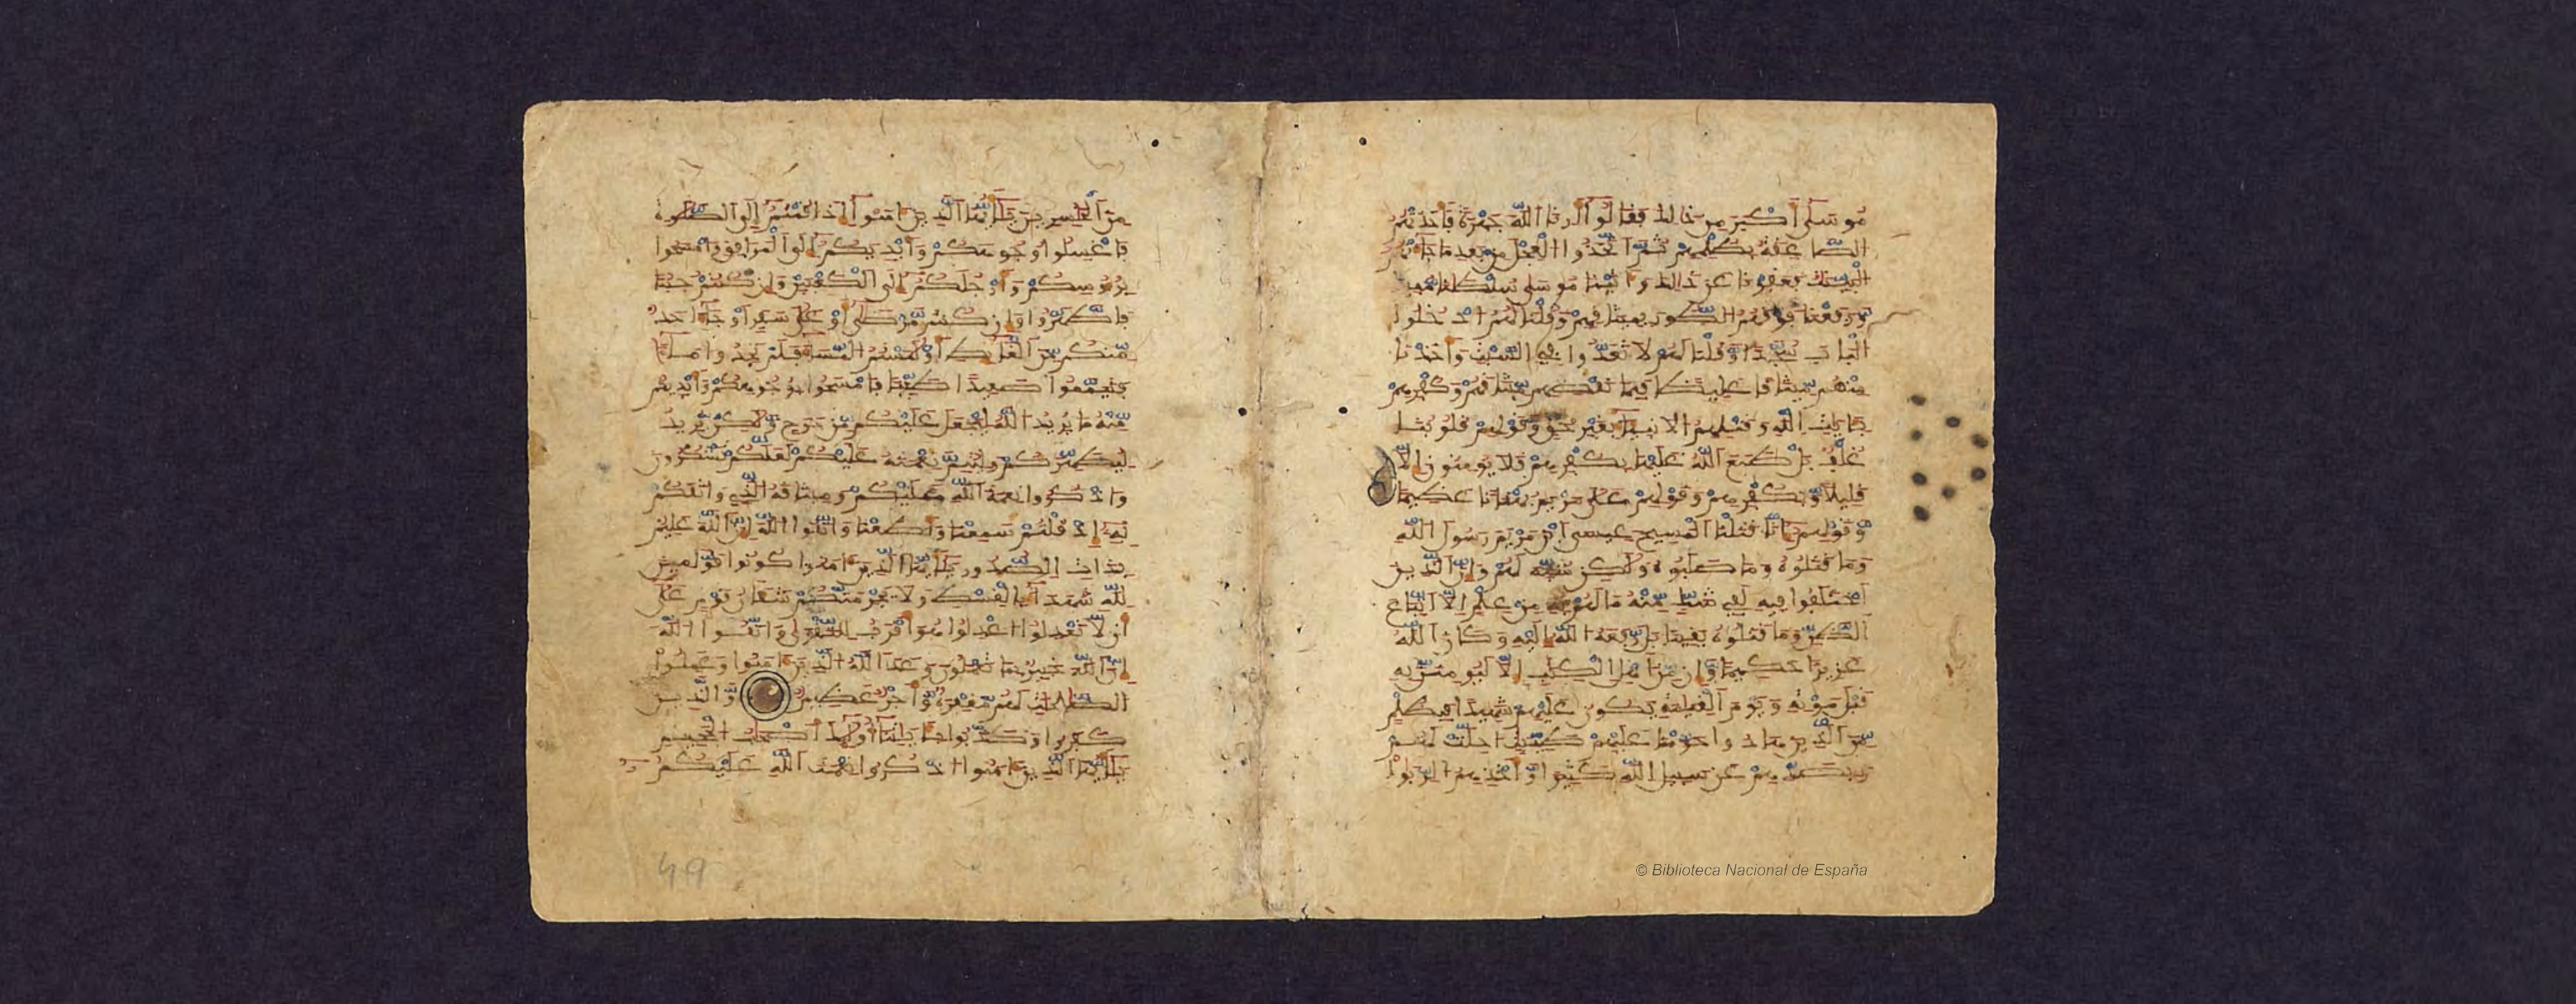 موسى أكبر من ذلك فقالوا أرنا الله جهرة فأخذتهم
الصعقة بظلمهم ثم اتخذوا العجل من بعد ما جاءتهم
البينت فعفونا عن ذلك وءاتينا موسى سلطنا مبينا
ورفعنا فوقهم الطور بميثقهم وقلنا لهم ادخلوا
الباب سجدا وقلنا لهم لا تعدوا في السبت وأخذنا
منهم ميثقا غليظا فبما نقضهم ميثقهم وكفرهم
بـٔايت الله وقتلهم الانبياء بغير حق وقولهم قلوبنا
غلف بل طبع الله عليها بكفرهم فلا يومنون إلا
قليلا وبكفرهم وقولهم على مريم بهتنا عظيما
وقولهم إنا قتلنا المسيح عيسى ابن مريم رسول الله
وما قتلوه وما صلبوه ولكن شبه لهم وإن الذين
اختلفوا فيه لفي شك منه ما لهم به من علم إلا اتباع
الظن وما قتلوه يقينا بل رفعه الله إليه وكان الله
عزيزا حكيما وإن من أهل الكتب إلا ليومنن به
قبل موته ويوم القيمة يكون عليهم شهيدا فبظلم
من الذين هادوا حرمنا عليهم طيبت أحلت لهم
وبصدهم عن سبيل الله كثيرا وأخذهم الربوا
من الخسرين يأيها الذين ءامنوا إذا قمتم إلى الصلوة
فاغسلوا وجوهكم وأيديكم إلى المرافق وامسحوا
برءوسكم وأرجلكم إلى الكعبين وإن كنتم جنبا
فاطهروا وإن كنتم مرضى أو على سفر أو جاء احد
منكم من الغايط أو لمستم النساء فلم تجدوا ماء
فتيمموا صعيدا طيبا فامسحوا بوجوهكم وأيديكم
منه ما يريد الله ليجعل عليكم من حرج ولكن يريد
ليطهركم وليتم نعمته عليكم لعلكم تشكرون
واذكروا نعمة الله عليكم وميثقه الذي واثقكم
به إذ قلتم سمعنا وأطعنا واتقوا الله إن الله عليم
بذات الصدور يأيها الذين ءامنوا كونوا قومين
لله شهداء بالقسط ولا يجرمنكم شنـٔان قوم على
أن لا تعدلوا اعدلوا هو أقرب للتقوى واتقوا الله
إن الله خبير بما تعملون وعد الله الذين ءامنوا وعملوا
الصلحت لهم مغفرة وأجر عظيم والذين
كفروا وكذبوا بـٔايتنا أولئك أصحب الجحيم
يأيها الذين ءامنوا اذكروا نعمت الله عليكم
49
© Biblioteca Nacional de España